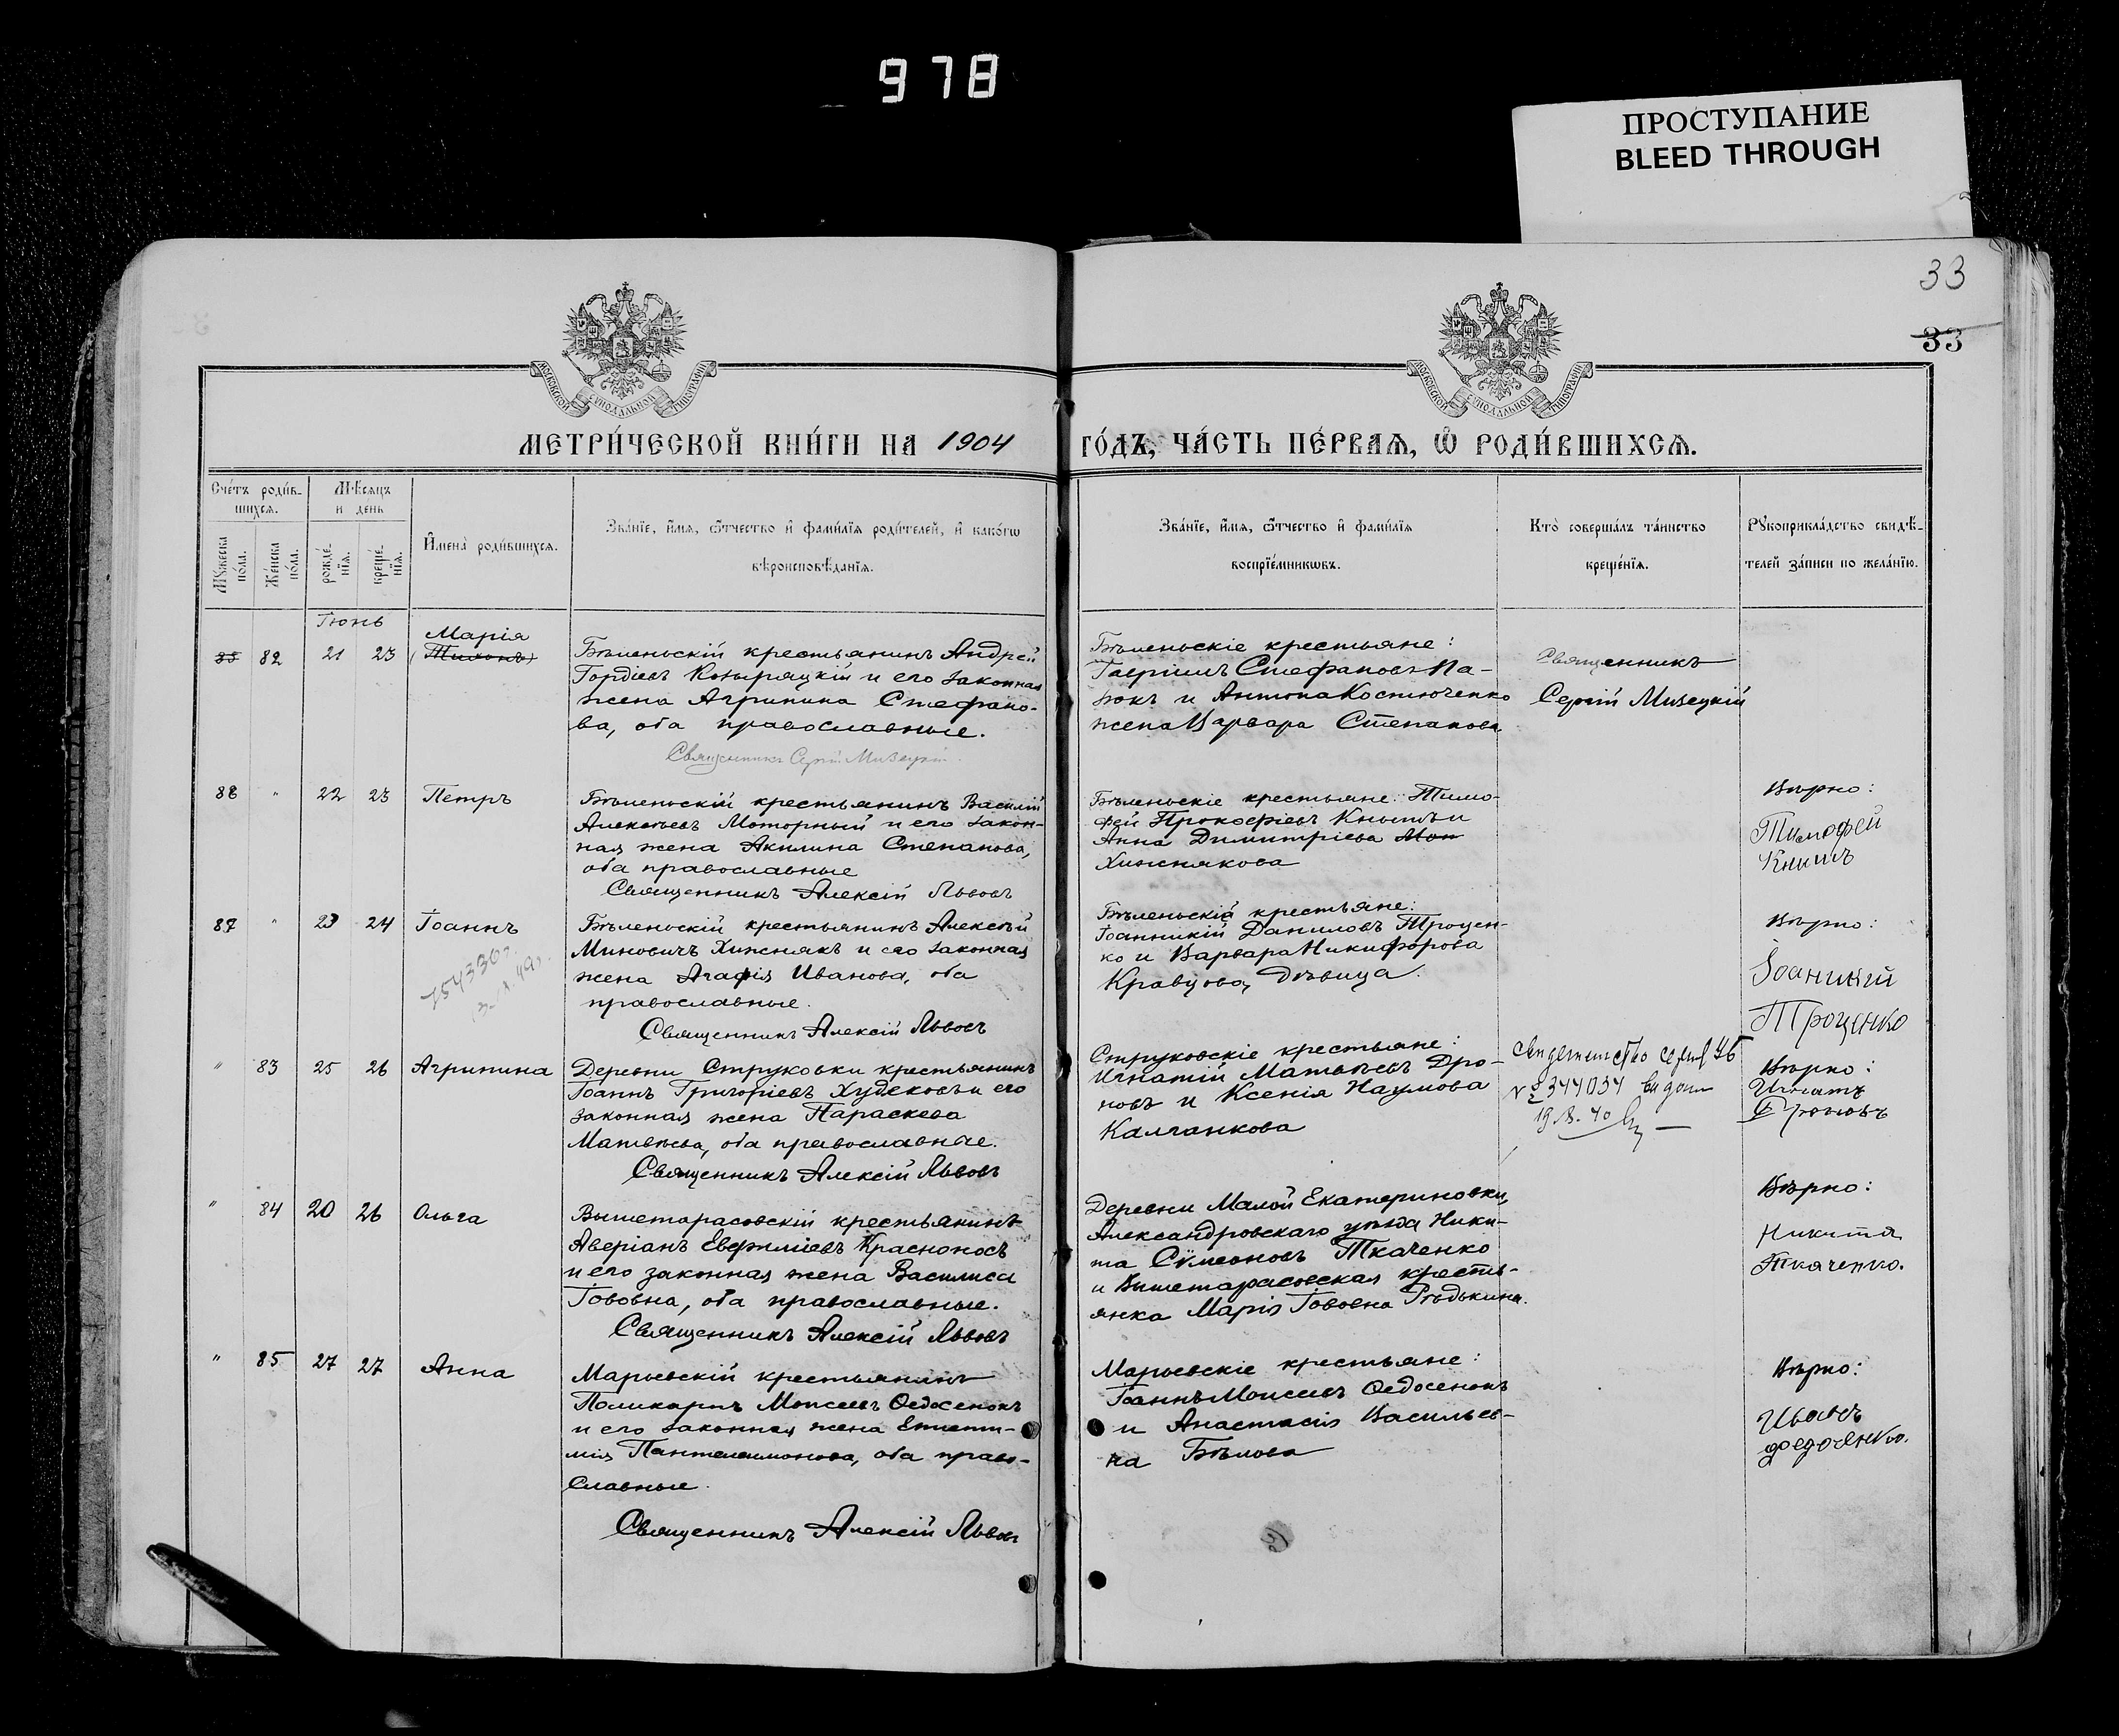 978
ПРОСТУПАНИЕ
BLEED THROUGH
33
33
МОСКОВСКОЙ СѴНОДАЛЬНОЙ ТИПОГРАФІИ
МОСКОВСКОЙ СѴНОДАЛЬНОЙ ТИПОГРАФІИ
МЕТРИ́ЧЕСКОЙ КНИ́ГИ НА 1904 ГО́ДЪ, ЧА́СТЬ ПЕ́РВАѦ, Ѡ РОДИ́ВШИХСѦ.
Сче́тъ роди́в-
шихсѧ.
Мꙋжеска по́ла.
Же́нска по́ла.
Мѣ́сѧцъ
и день
рожде́-
нїѧ.
креще́-
нїѧ.
И҆мена̀ роди́вшихсѧ.
Зва́нїе, и҆́мѧ, ѻ҆́тчество и҆ фами́лїѧ роди́телей, и҆ како́гѡ
вѣроисповѣ́данїѧ.
Зва́нїе, и҆́мѧ, ѻ҆́тчество и҆ фами́лїѧ
воспрїе́мникѡвъ.
Кто̀ соверша́лъ та́инство
креще́нїѧ.
Рꙋкоприкла́дство свидѣ́-
телей за́писи по жела́нїю.
Іюнь
85 82 21 23
Марія
(Тихонъ)
Бѣленьскій крестьянинъ Андрей
Гордіевъ Козыряцкій и его законная
жена Агрипина Стефано-
ва, оба православные.
Священникъ Сергій Мизецкій
Бѣленьскіе крестьяне:
Гавріилъ Стефановъ Па-
зюкъ и Антона Костюченко
жена Варвара Степанова
Священникъ
Сергій Мизецкій
86 " 22 23 Петръ
Бѣленьскій крестьянинъ Василій
Алексѣевъ Моторный и его закон-
ная жена Акилина Степанова,
оба православные
Священникъ Алексій Львовъ
Бѣленьскіе крестьяне: Тимо-
фей Прокофіевъ Кнышъ и
Анна Димитріева Мон
Хижнякова
Вѣрно:
Тимофей
Кнышъ
87 " 23 24 Іоаннъ
754330
Бѣленьскій крестьянинъ Алексѣй
Миновичъ Хижнякъ и его законная
жена Агафія Иванова, оба
православные.
Священникъ Алексій Львовъ
Бѣленьскіе крестьяне:
Іоанникій Даниловъ Троцен-
ко и Варвара Никифорова
Кравцова, дѣвица.
Вѣрно:
Іоаникій
Троценко
" 83 25 26 Агрипина
Деревни Струковки крестьянинъ
Іоаннъ Григоріевъ Худековъ и его
законная жена Параскева
Матвѣева, оба православные.
Священникъ Алексій Львовъ
Струковскіе крестьяне:
Игнатій Матвѣевъ Дро-
новъ и Ксенія Наумова
Калчанкова
№ 344034
Вѣрно:
Игнатъ
Дроновъ
" 84 20 26 Ольга
Вышетарасовскій крестьянинъ
Аверіанъ Евфиміевъ Красноносъ
и его законная жена Василиса
Іововна, оба православные.
Священникъ Алексій Львовъ
Деревни Малой Екатериновки,
Александровскаго уѣзда Ники-
та Сѷмеоновъ Ткаченко
и Вышетарасовская кресть-
янка Марія Іововна Рѣдькина.
Вѣрно:
Никита
Ткаченко.
" 85 27 27 Анна
Марьевскій крестьянинъ
Поликарпъ Моисеевъ Ѳедосенокъ
и его законная жена Еписти-
мія Пантелеимонова, оба право-
славные.
Священникъ Алексій Львовъ
Марьевскіе крестьяне:
Іоаннъ Моисеевъ Ѳедосенокъ
и Анастасія Васильев-
на Бѣлова
Вѣрно:
Иванъ